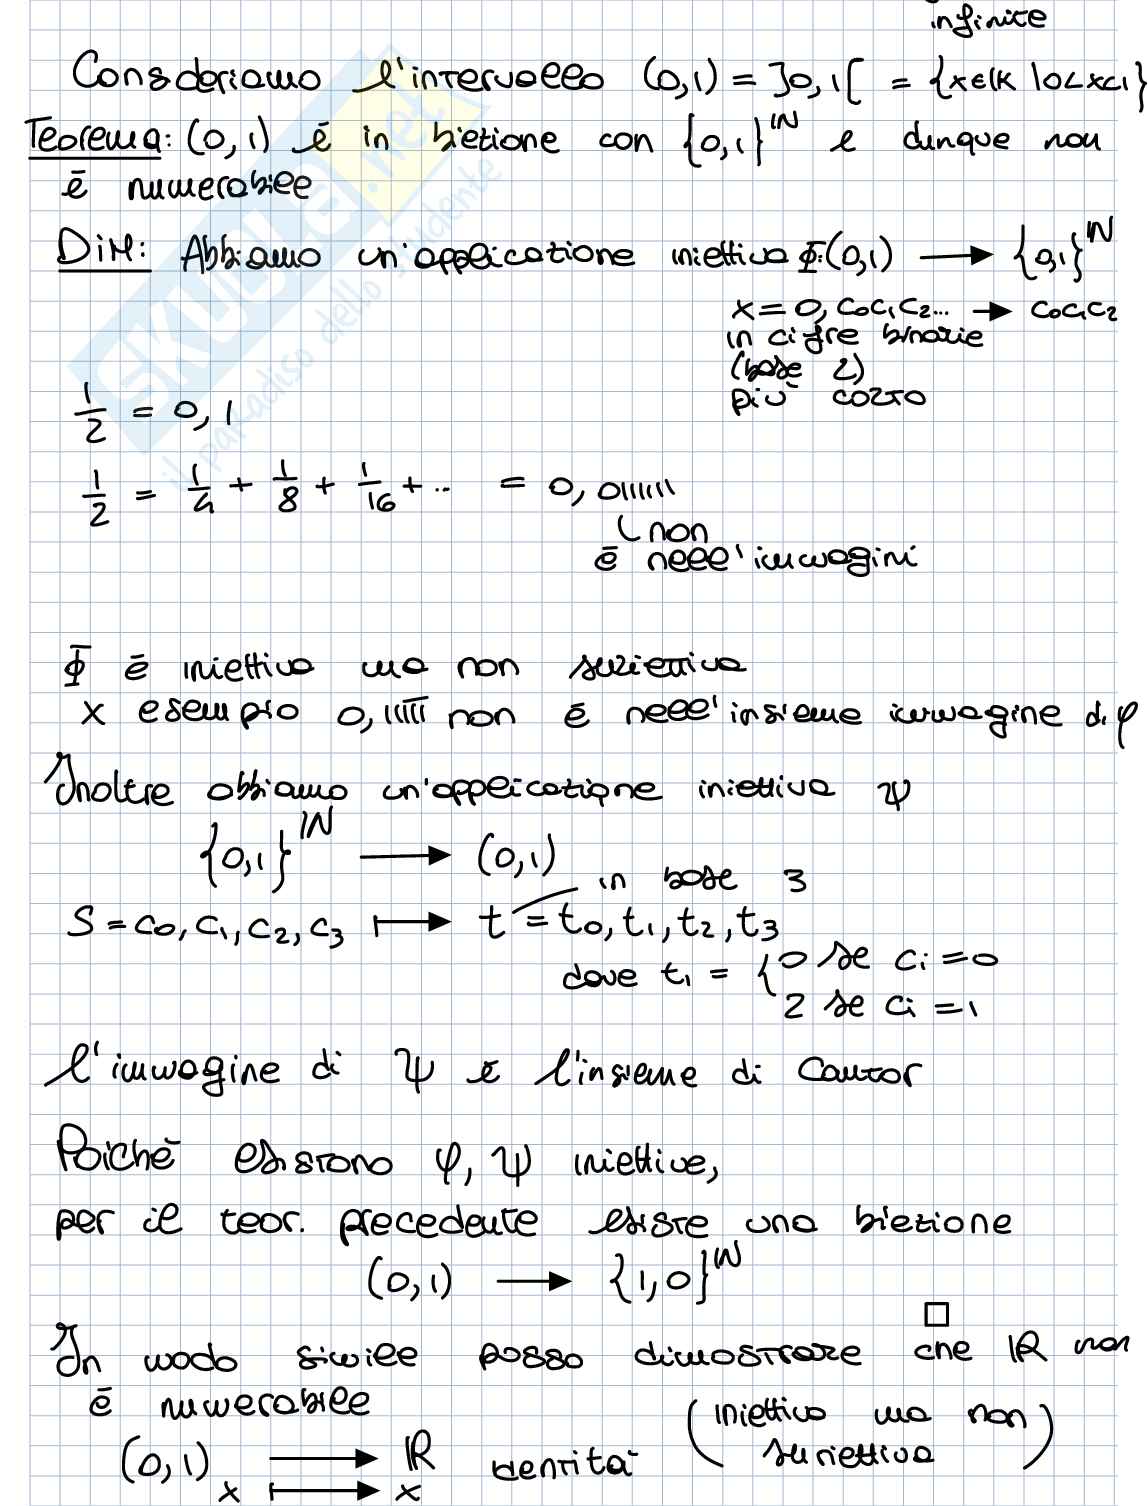 infinite
Consideriamo l'intervallo (0,1) = ]0,1[ = {x∈R | 0<x<1}
Teorema: (0,1) è in biezione con {0,1}^ℕ e dunque non
è numerabile
DIM: Abbiamo un'applicazione iniettiva Φ:(0,1) → {0,1}^ℕ
x = 0,c₀c₁c₂... → c₀c₁c₂
in cifre binarie
(base 2)
più corto
1/2 = 0,1
1/2 = 1/4 + 1/8 + 1/16 + .. = 0,0111111
non
è nell'immagini
Φ è iniettiva ma non suriettiva
x esempio 0,11111 non è nell'insieme immagine di φ
Inoltre abbiamo un'applicazione iniettiva ψ
{0,1}^ℕ → (0,1)
in base 3
S = c₀, c₁, c₂, c₃ ↦ t = t₀, t₁, t₂, t₃
dove t₁ = { 0 se ci = 0
2 se ci = 1
l'immagine di ψ è l'insieme di Cantor
Poichè esistono φ, ψ iniettive,
per il teor. precedente esiste una biezione
(0,1) → {1,0}^ℕ
□
In modo simile posso dimostrare che ℝ non
è numerabile
(0,1) → ℝ identità (iniettiva ma non suriettiva)
x ↦ x
SKUOLA.net
il paradiso dello studente